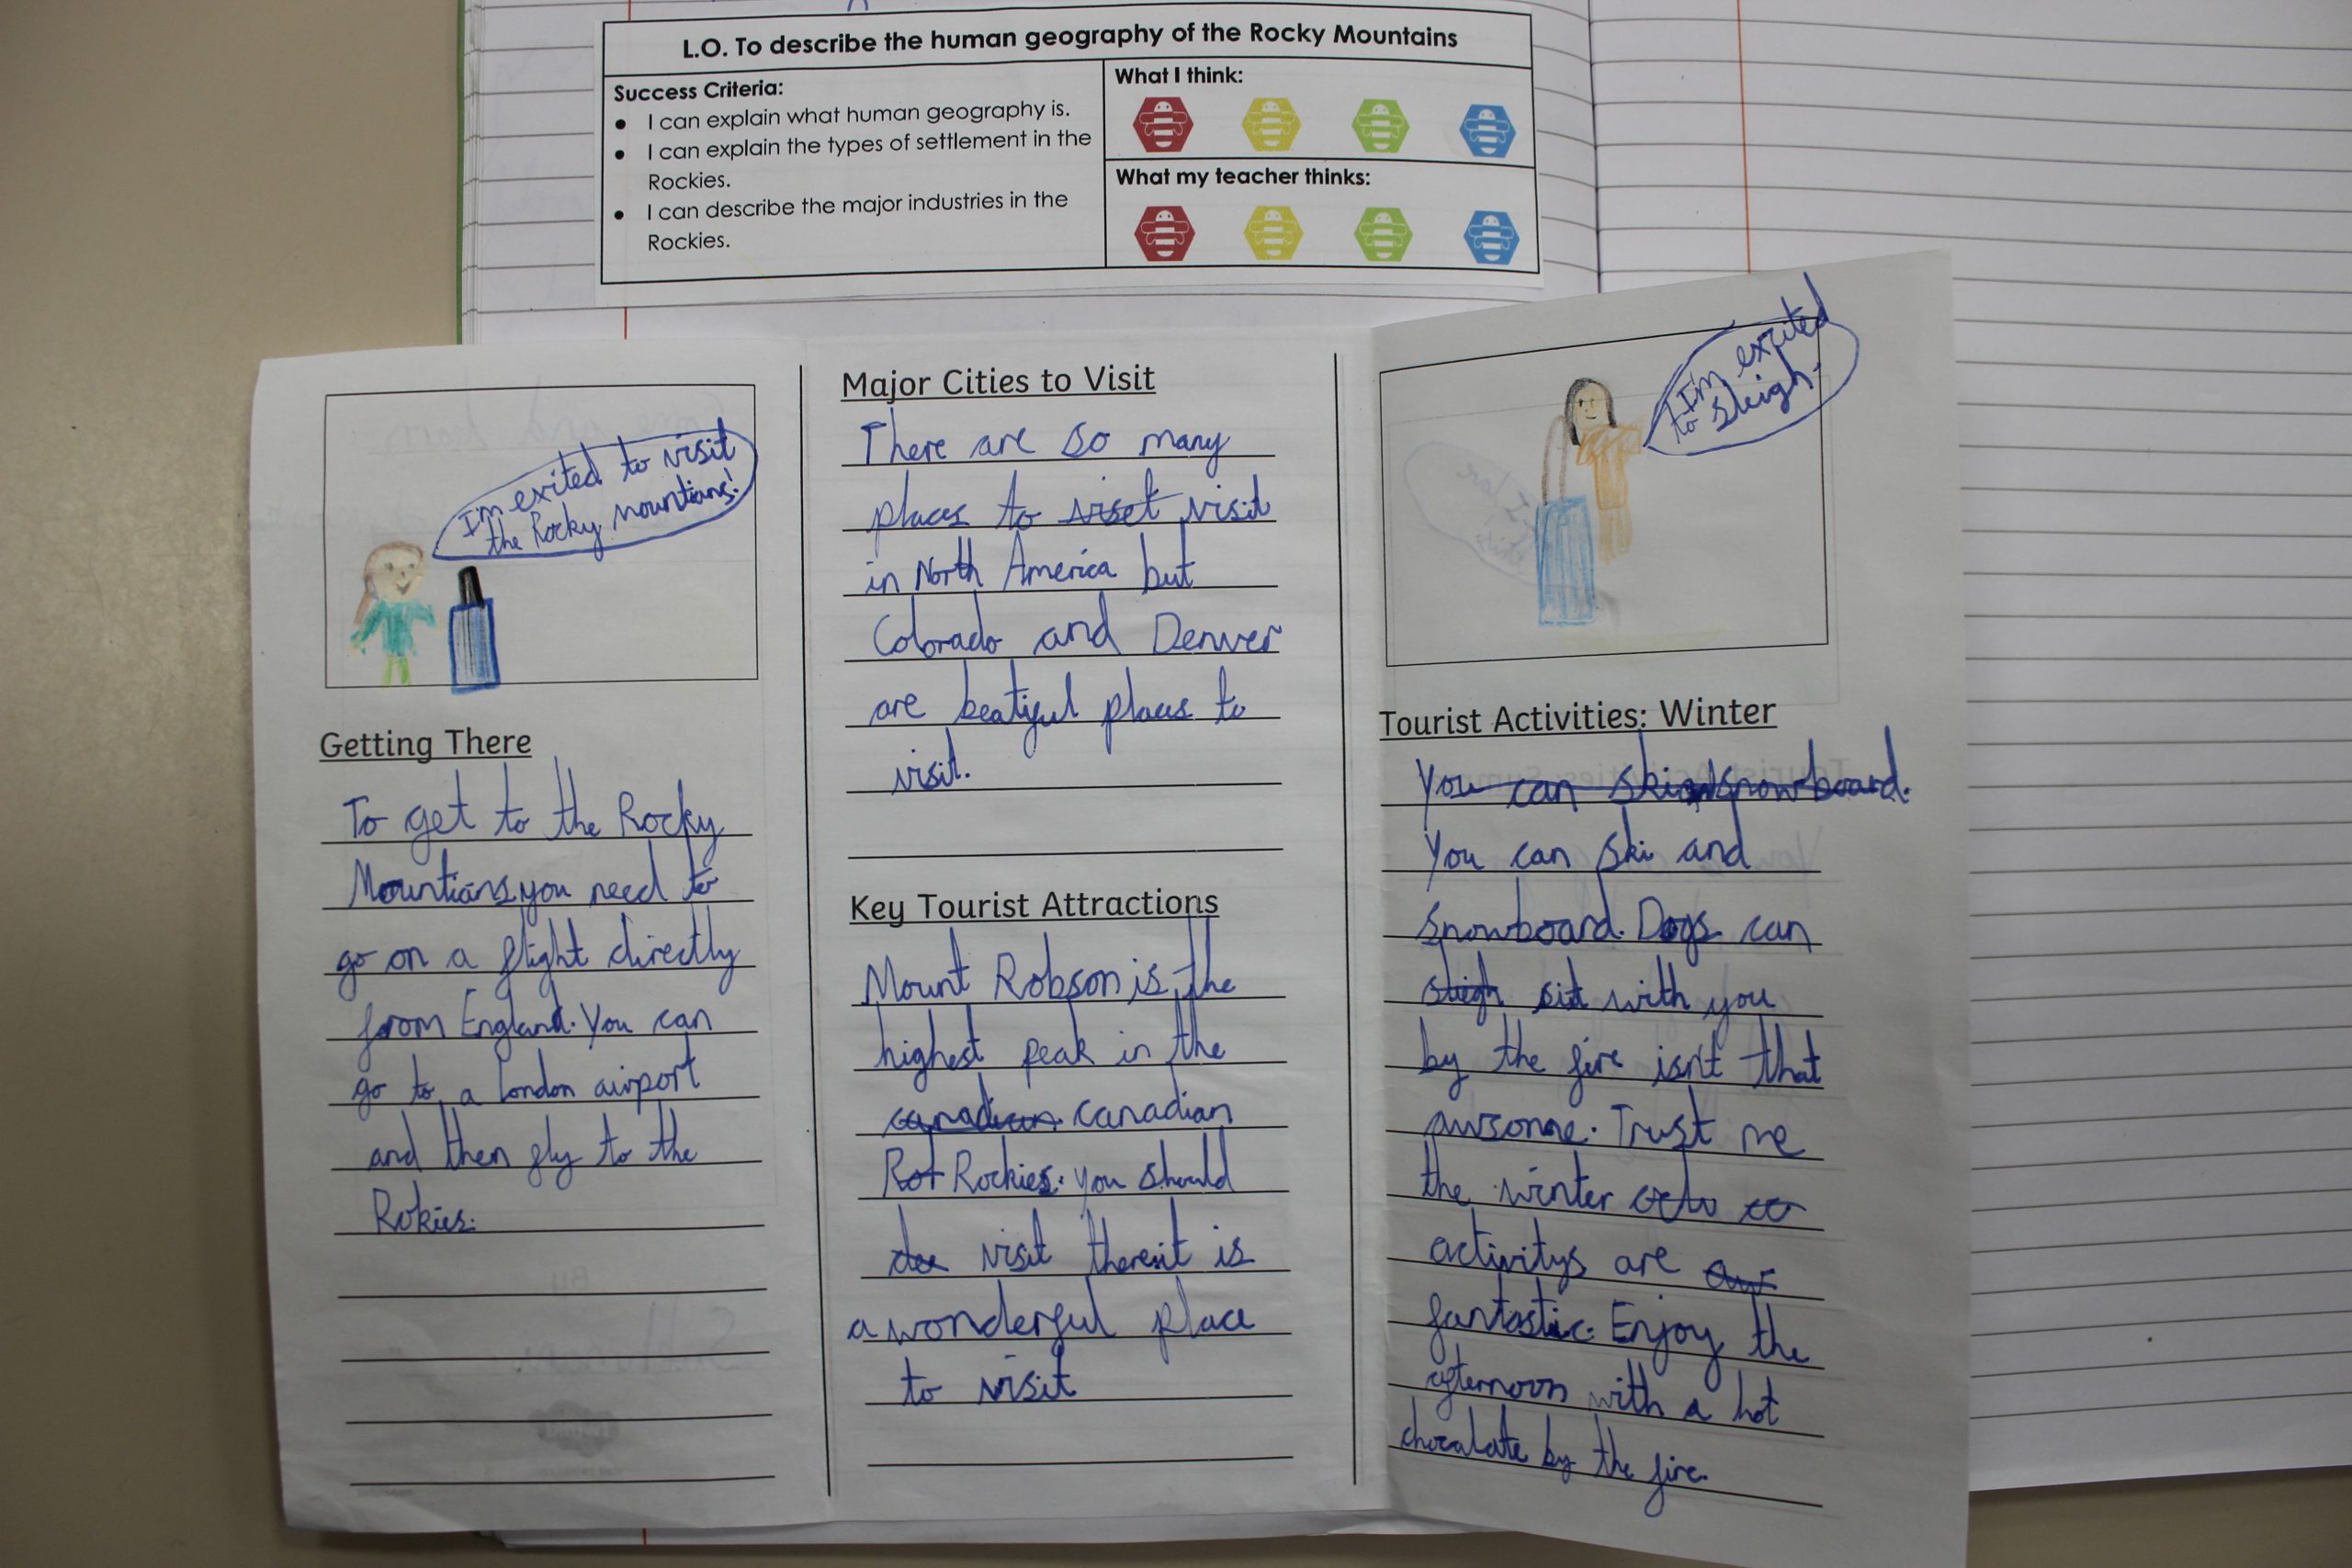 L.O. To describe the human geography of the Rocky Mountains
Success Criteria:
● I can explain what human geography is.
● I can explain the types of settlement in the
Rockies.
● I can describe the major industries in the
Rockies.
What I think:
What my teacher thinks:
I'm exited to visit
the Rocky mountians!
Getting There
To get to the Rocky
Mountians you need to
go on a flight directly
from England. You can
go to a London airport
and then fly to the
Rokies.
Major Cities to Visit
There are so many
places to viset visit
in North America but
Colorado and Denver
are beatiful places to
visit.
Key Tourist Attractions
Mount Robson is the
highest peak in the
canadian canadian
Rot Rockies. you should
visit there it is
a wonderful place
to visit
I'm excited
to sleigh.
Tourist Activities: Winter
You can ski snowboard.
You can ski and
snowboard. Dogs can
sleigh sit with you
by the fire isn't that
awsome. Trust me
the winter
activitys are
fantastic. Enjoy the
afternoon with a hot
chocalate by the fire.